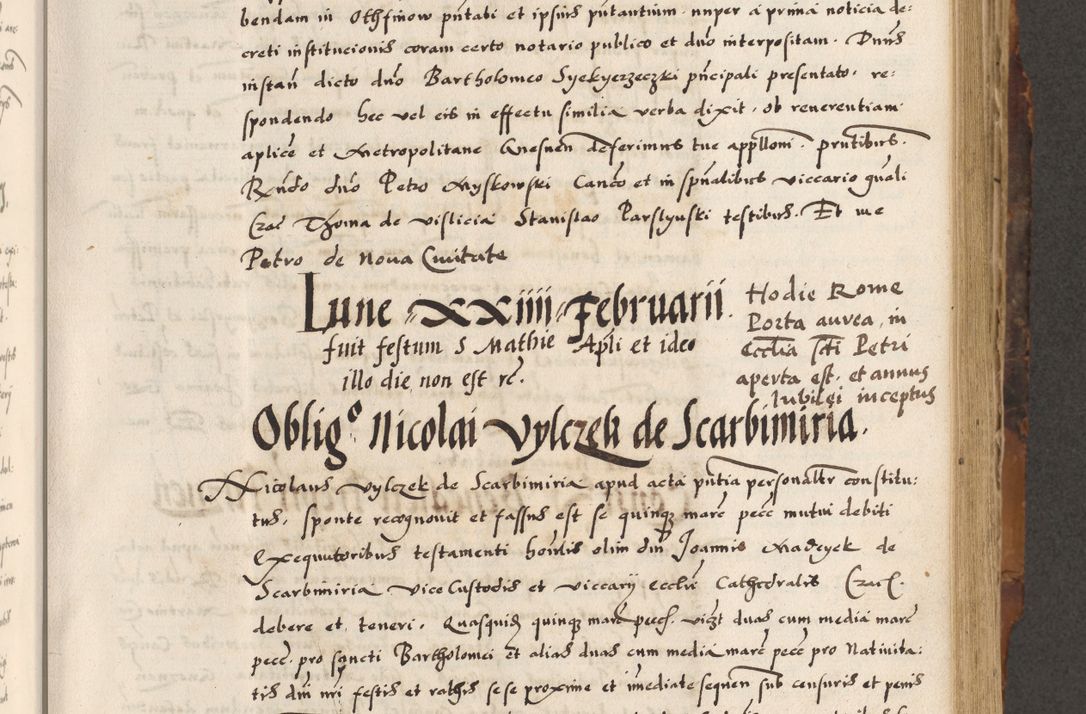 bendam in Othfinow pñtabi et ipsius pñtantium . nuper a prima noticia de:
creti institucionis coram certo notario publico et dño interpositam . Dnus
instañ dicto dño Bartholomeo Syekyerzeczki pñcipali presentato . re:
spondendo hec vel eis in effectu similia verba dixit . ob reverentiam
aplice et Metropolitane Gnesnen deferimus tue applloni . pñtibus .
Rñdo dño Petro Myskowski Canco et in spũalibus viccario gñali
Crac Thoma de Vislicia Stanislao Parstynski testibus . Et me
Petro de Nova Civitate
Lune XXIIII Februarii .
fuit festum S Mathie Apli et ideo
illo die non est rc .
Hodie Rome
Porta aurea in
Ecclia scti Petri
aperta est . et annus
Iubilei inceptus
Obligo Nicolai Vylczek de Scarbimiria .
Nicolaus Vylczek de Scarbimiria apud acta pñtia personalr constitu:
tus , sponte recognovit et fassus est se quinqz marc pecc mutui debiti
Exequutoribus testamenti hoñlis olim dñi Joannis Madeyek de
Scarbimiria Vice Custodis et viccarij ecclie Cathedralis Crac .
debere et teneri . Quasquidz quinqz marc pecc . vizt duas cum media marc
pecc . pro sancti Bartholomei et alias duas cum media marc pecc pro Nativita:
tis dñi nri festis et rathis sese proxime et imediate sequen sub censuris et penis